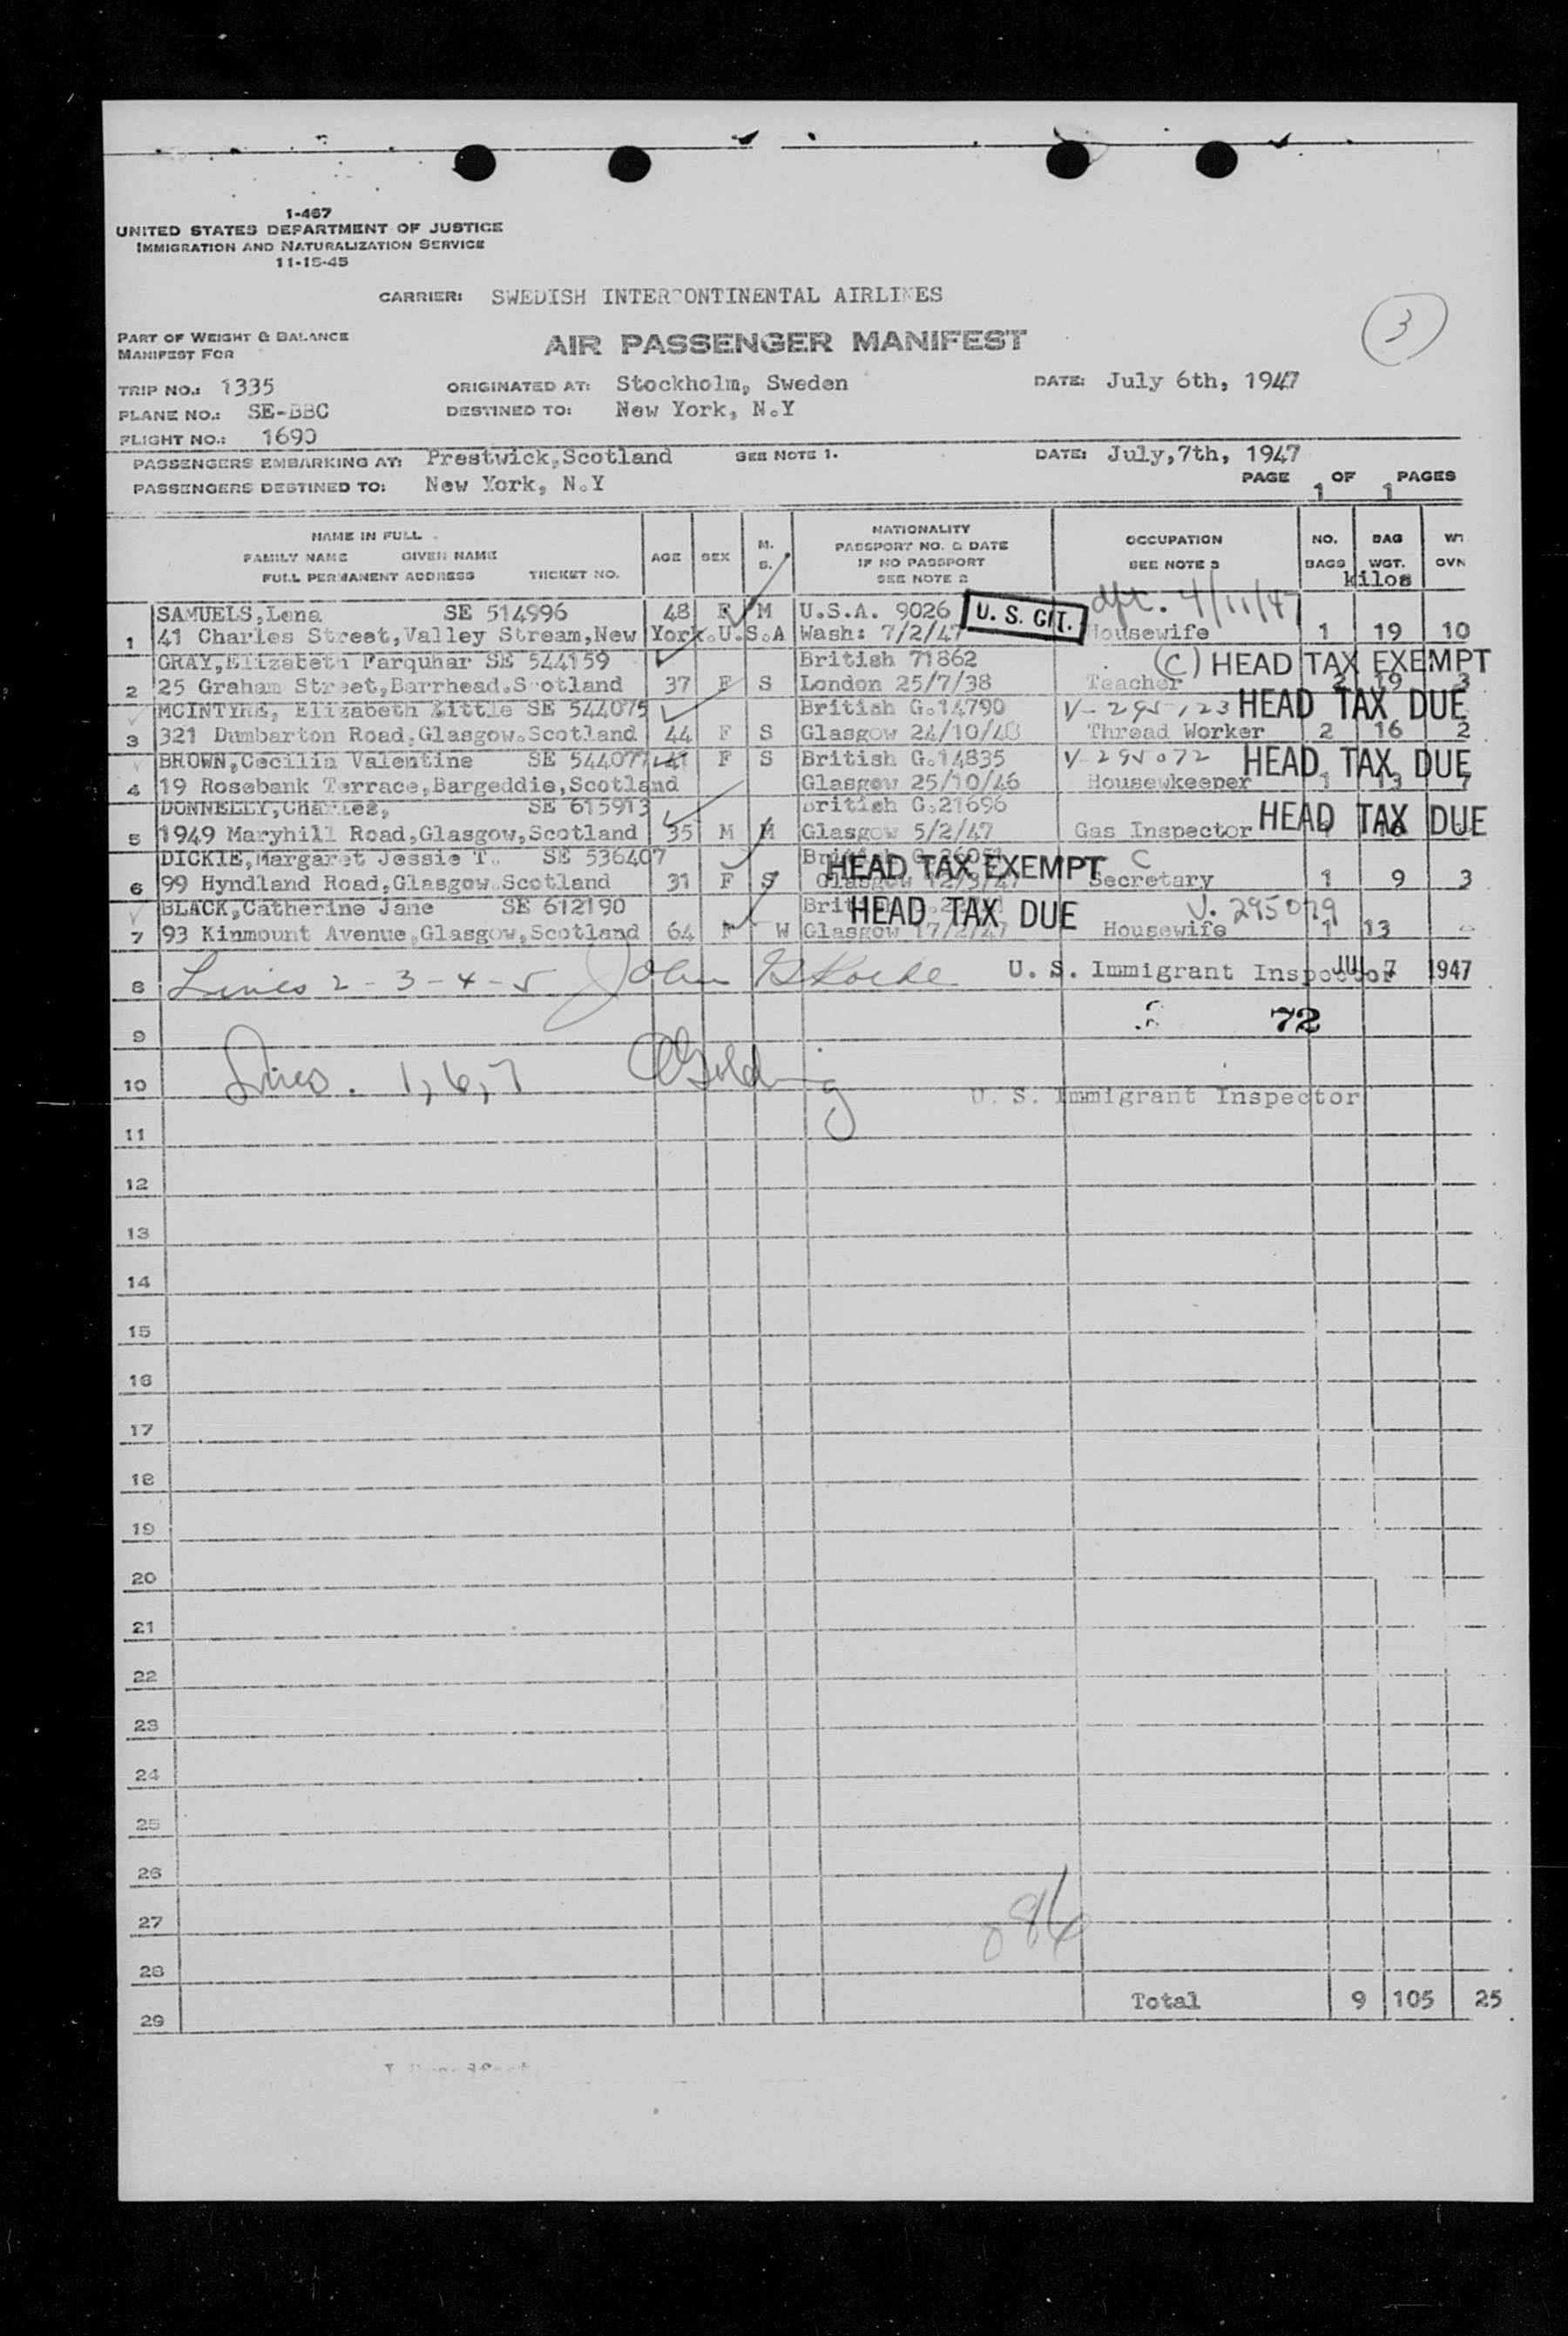 1-467
UNITED STATES DEPARTMENT OF JUSTICE
IMMIGRATION AND NATURALIZATION SERVICE
11-15-45
CARRIER: SWEDISH INTERCONTINENTAL AIRLINES
3
PART OF WEIGHT & BALANCE
MANIFEST FOR
AIR PASSENGER MANIFEST
TRIP NO.: 1335 ORIGINATED AT: Stockholm, Sweden DATE: July 6th, 1947
PLANE NO.: SE-BBC DESTINED TO: New York, N.Y
FLIGHT NO.: 1690
PASSENGERS EMBARKING AT: Prestwick,Scotland SEE NOTE 1. DATE: July,7th, 1947
PASSENGERS DESTINED TO: New York, N.Y PAGE 1 OF 1 PAGES
NAME IN FULL
FAMILY NAME GIVEN NAME
FULL PERMANENT ADDRESS TICKET NO.
AGE SEX M. S.
NATIONALITY
PASSPORT NO. & DATE
IF NO PASSPORT
SEE NOTE 2
OCCUPATION
SEE NOTE 3
NO. BAGS
BAG WGT.
WT. OVN
kilos
SAMUELS,Lena SE 514996 48 F M U.S.A. 9026 U. S. CIT.
1 41 Charles Street,Valley Stream,New York.U.S.A Wash: 7/2/47 Housewife 1 19 10
GRAY,Elizabeth Farquhar SE 544159 British 71862 (C) HEAD TAX EXEMPT
2 25 Graham Street,Barrhead.Scotland 37 F S London 25/7/38 Teacher 2 19 3
MCINTYRE, Elizabeth Little SE 544075 British G.14790 V-295123 HEAD TAX DUE
3 321 Dumbarton Road,Glasgow.Scotland 44 F S Glasgow Thread Worker 2 16 2
BROWN,Cecilia Valentine SE 544077 41 F S British G.14835 V-295072 HEAD TAX DUE
4 19 Rosebank Terrace,Bargeddie,Scotland Glasgow 25/10/46 Housewkeeper 1 13 7
DONNELLY,Charles, SE 615913 British G.21696 HEAD TAX DUE
5 1949 Maryhill Road,Glasgow,Scotland 35 M M Glasgow 5/2/47 Gas Inspector 1 16
DICKIE,Margaret Jessie T. SE 536407 HEAD TAX EXEMPT C
6 99 Hyndland Road,Glasgow.Scotland 31 F S Glasgow 12/3/47 Secretary 1 9 3
BLACK,Catherine Jane SE 612190 HEAD TAX DUE V. 295079
7 93 Kinmount Avenue,Glasgow,Scotland 64 F W Glasgow 17/2/47 Housewife 1 13
8 Lines 2-3-4-5 John U. S. Immigrant Inspector JUL 7 1947
9 72
10 Lines. 1,6,7 Golding U. S. Immigrant Inspector
11
12
13
14
15
16
17
18
19
20
21
22
23
24
25
26
27
28
29 Total 9 105 25